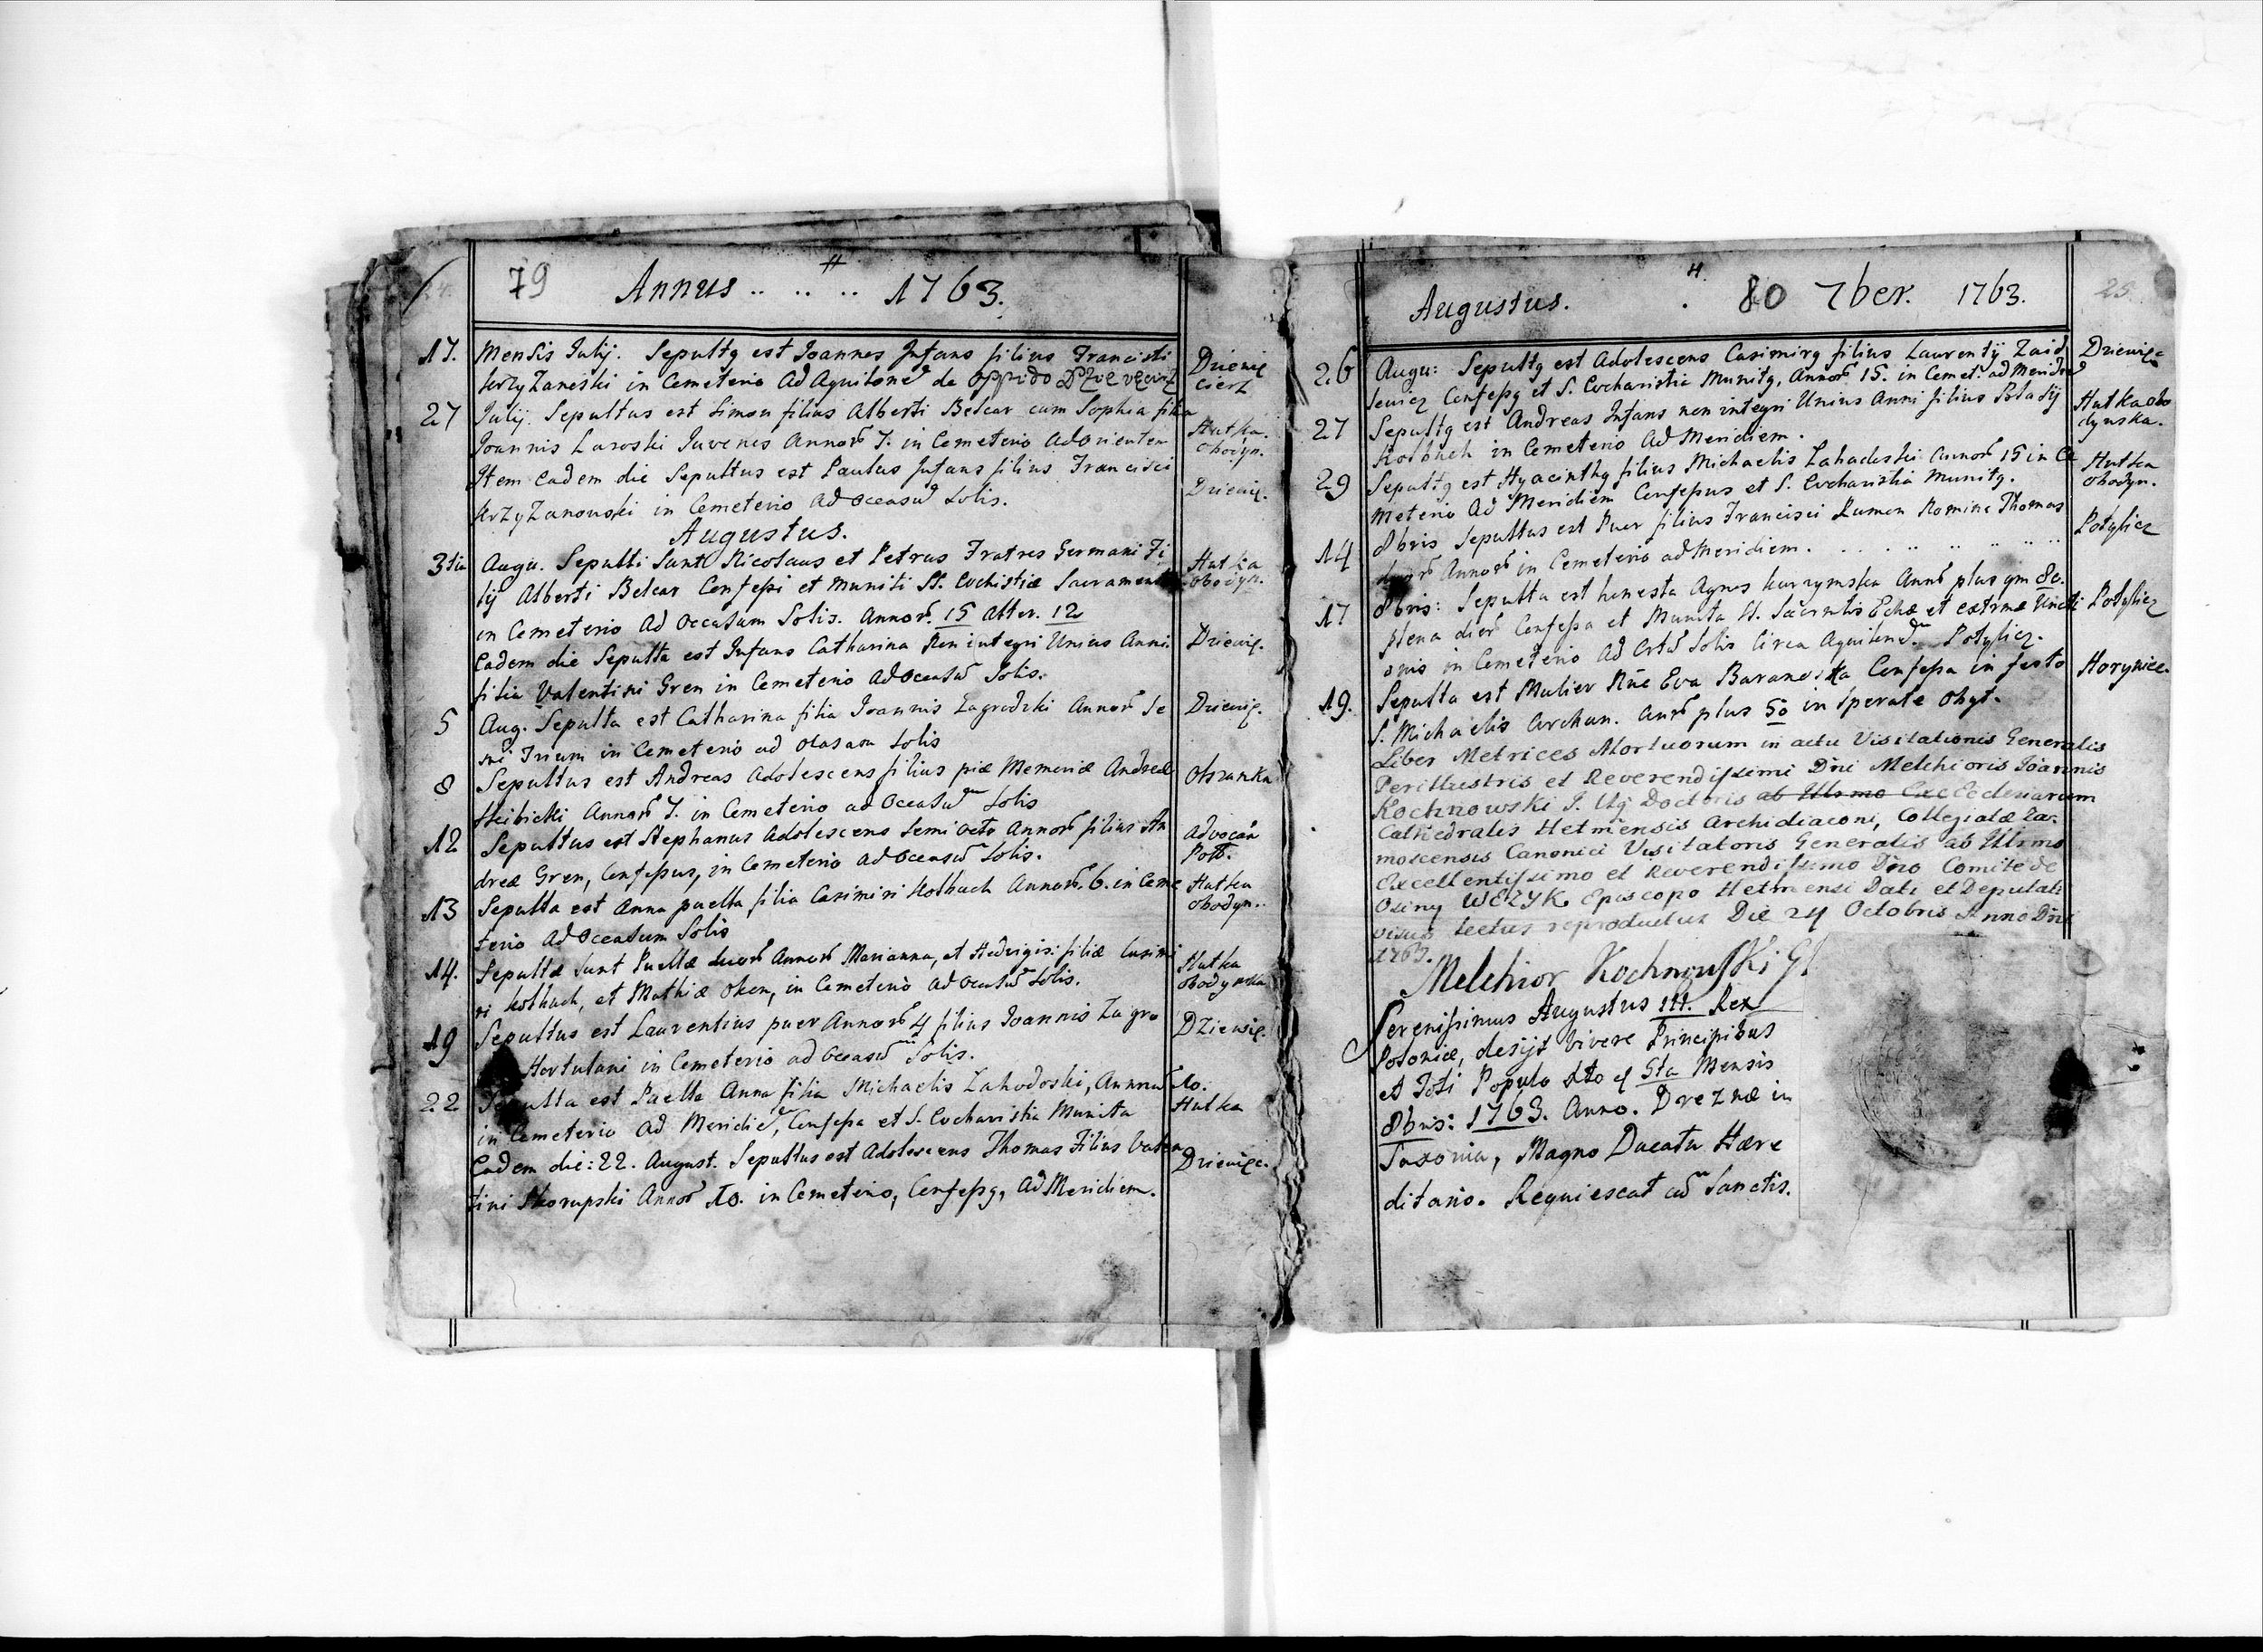 79 Annus .. .. .. 1763.
17. Mensis Julij. Sepultg est Joannes Infans filius Francisci Dziewię
krzyżaneski in Cemeterio Ad Aquilone de oppido cierz
27 Julij. Sepultus est Simon filius Alberti Belcar cum Sophia filia Hutka.
Joannis Laroski Juvenes Annor 7. in Cemeterio Ad orientem obodyn.
Item Eadem die Sepultus est Paulus Infans filius Francisci Dziewię.
krzyzanouski in Cemeterio Ad Occasu Solis.
Augustus.
3tia Augu. Sepulti Sunt Nicolaus et Petrus Fratres Germani Fi Hutka
lij Alberti Belcar Confeßi et muniti St. Euchistiæ Sacramento obodyn.
in Cemeterio Ad Occasum Solis. Annor. 15 alter. 12
Eadem die Sepulta est Infans Catharina Non integri Unius Anni. Dziewię.
filia Valentini Gren in Cemeterio Ad Occasu Solis.
5 Aug. Sepulta est Catharina filia Joannis Zagrodzki Annor Se Dziewię.
mi Trium in Cemeterio ad Solis
8 Sepultus est Andreas Adolescens filius piæ Memoriæ Andreæ Olszanka
Annor 7. in Cemeterio ad Occasum Solis
12 Sepultus est Stephanus Adolescens Semi octo Annor filius An advocan
dreæ Gren, Confeßus, in Cemeterio Ad Occasum Solis. Pott.
13 Sepulta est Anna puella filia Casimiri Kolbuch Annor. 6. in Ceme Hutka
terio Ad Occasum Solis obodyn..
14. Sepultæ Sunt Puellæ duor Annor Marianna, et Hedvigis: filiæ Casimi Hutka
ri kolbuch, et Mathiæ Oken, in Cemeterio Ad Occasu Solis. obodynska
19 Sepultus est Laurentius puer Annor 4 filius Joannis Zagro Dziewię.
Hortulani in Cemeterio ad Occasum Solis.
22 Sepulta est Puella Anna filia Michaelis Zahodoski, Annor 10.
in Cemeterio Ad Meridie, Confeßa et S. Eucharistia Munita Hutka
Eadem die: 22. August. Sepultus est Adolescens Thomas Filius Valen Dziewięc.
tini Skorupski Annor 10. in Cemeterio, Confeßg, Ad Meridiem.
Augustus. . 80 7ber. 1763. 25.
26 Augu: Sepultg est Adolescens Casimirg filius Laurentij Zaid Dziewięc
lewicz Confeßg et S. Eucharistia Munitg, Annor 15. in Cemet. ad Meridie
27 Sepultg est Andreas Infans non integri Unius Anni filius Hutka obo
in Cemeterio Ad Meridiem. dynska.
29 Sepultg est Hyacinthg filius Michaelis Zahadeski Annor 15 in Ce Hutka
meterio Ad Meridiem Confeßus et S. Eucharistia munitg. obodyn.
14 8bris Sepultus est Puer filius Francisci Rumen Nomine Thomas Potylicz
duor Annor in Cemeterio ad Meridiem. . . . .. .. .. .. ..
17 8bris: Sepulta est honesta Agnes kurzymska Ann plus qm 80. Potylicz
plena dier Confeßa et Munita St. Sacrmtis Echæ et extrmæ Uncti
onis in Cemeterio Ad Solis Circa Aquilonem. Potylicz.
19. Sepulta est Mulier Eva Baranoska Confeßa in festo Horyniec.
S. Michaelis Archan. ann plus 50 insperate obyt.
Liber Metrices Mortuorum in actu Visitationis Generalis
Perillustris et Reverendißimi Dni Melchioris Joannis
Kochnowski J. Doctoris ab Illsmo Exc Ecclesiarum
Cathedralis Helmensis Archidiaconi, Collegiatæ Za-
moscensis Canonici Visitatoris Generalis ab Illsmo
Excellentißimo et Reverendißimo Dno Comite de
Osiny WĘZYK Episcopo Helmensi Dati et Deputati
visus lectus reproductus Die 24 Octobris Anno Dni
1763.
Melchior Kochnowski
Serenißimus Augustus III. Rex
Poloniæ, desijt vivere Principibus
et Toti Populo 5ta Mensis
8bris: 1763. Anno. Dreznæ in
Saxonia, Magno Ducatu Hære
ditario. Requiescat cum Sanctis.